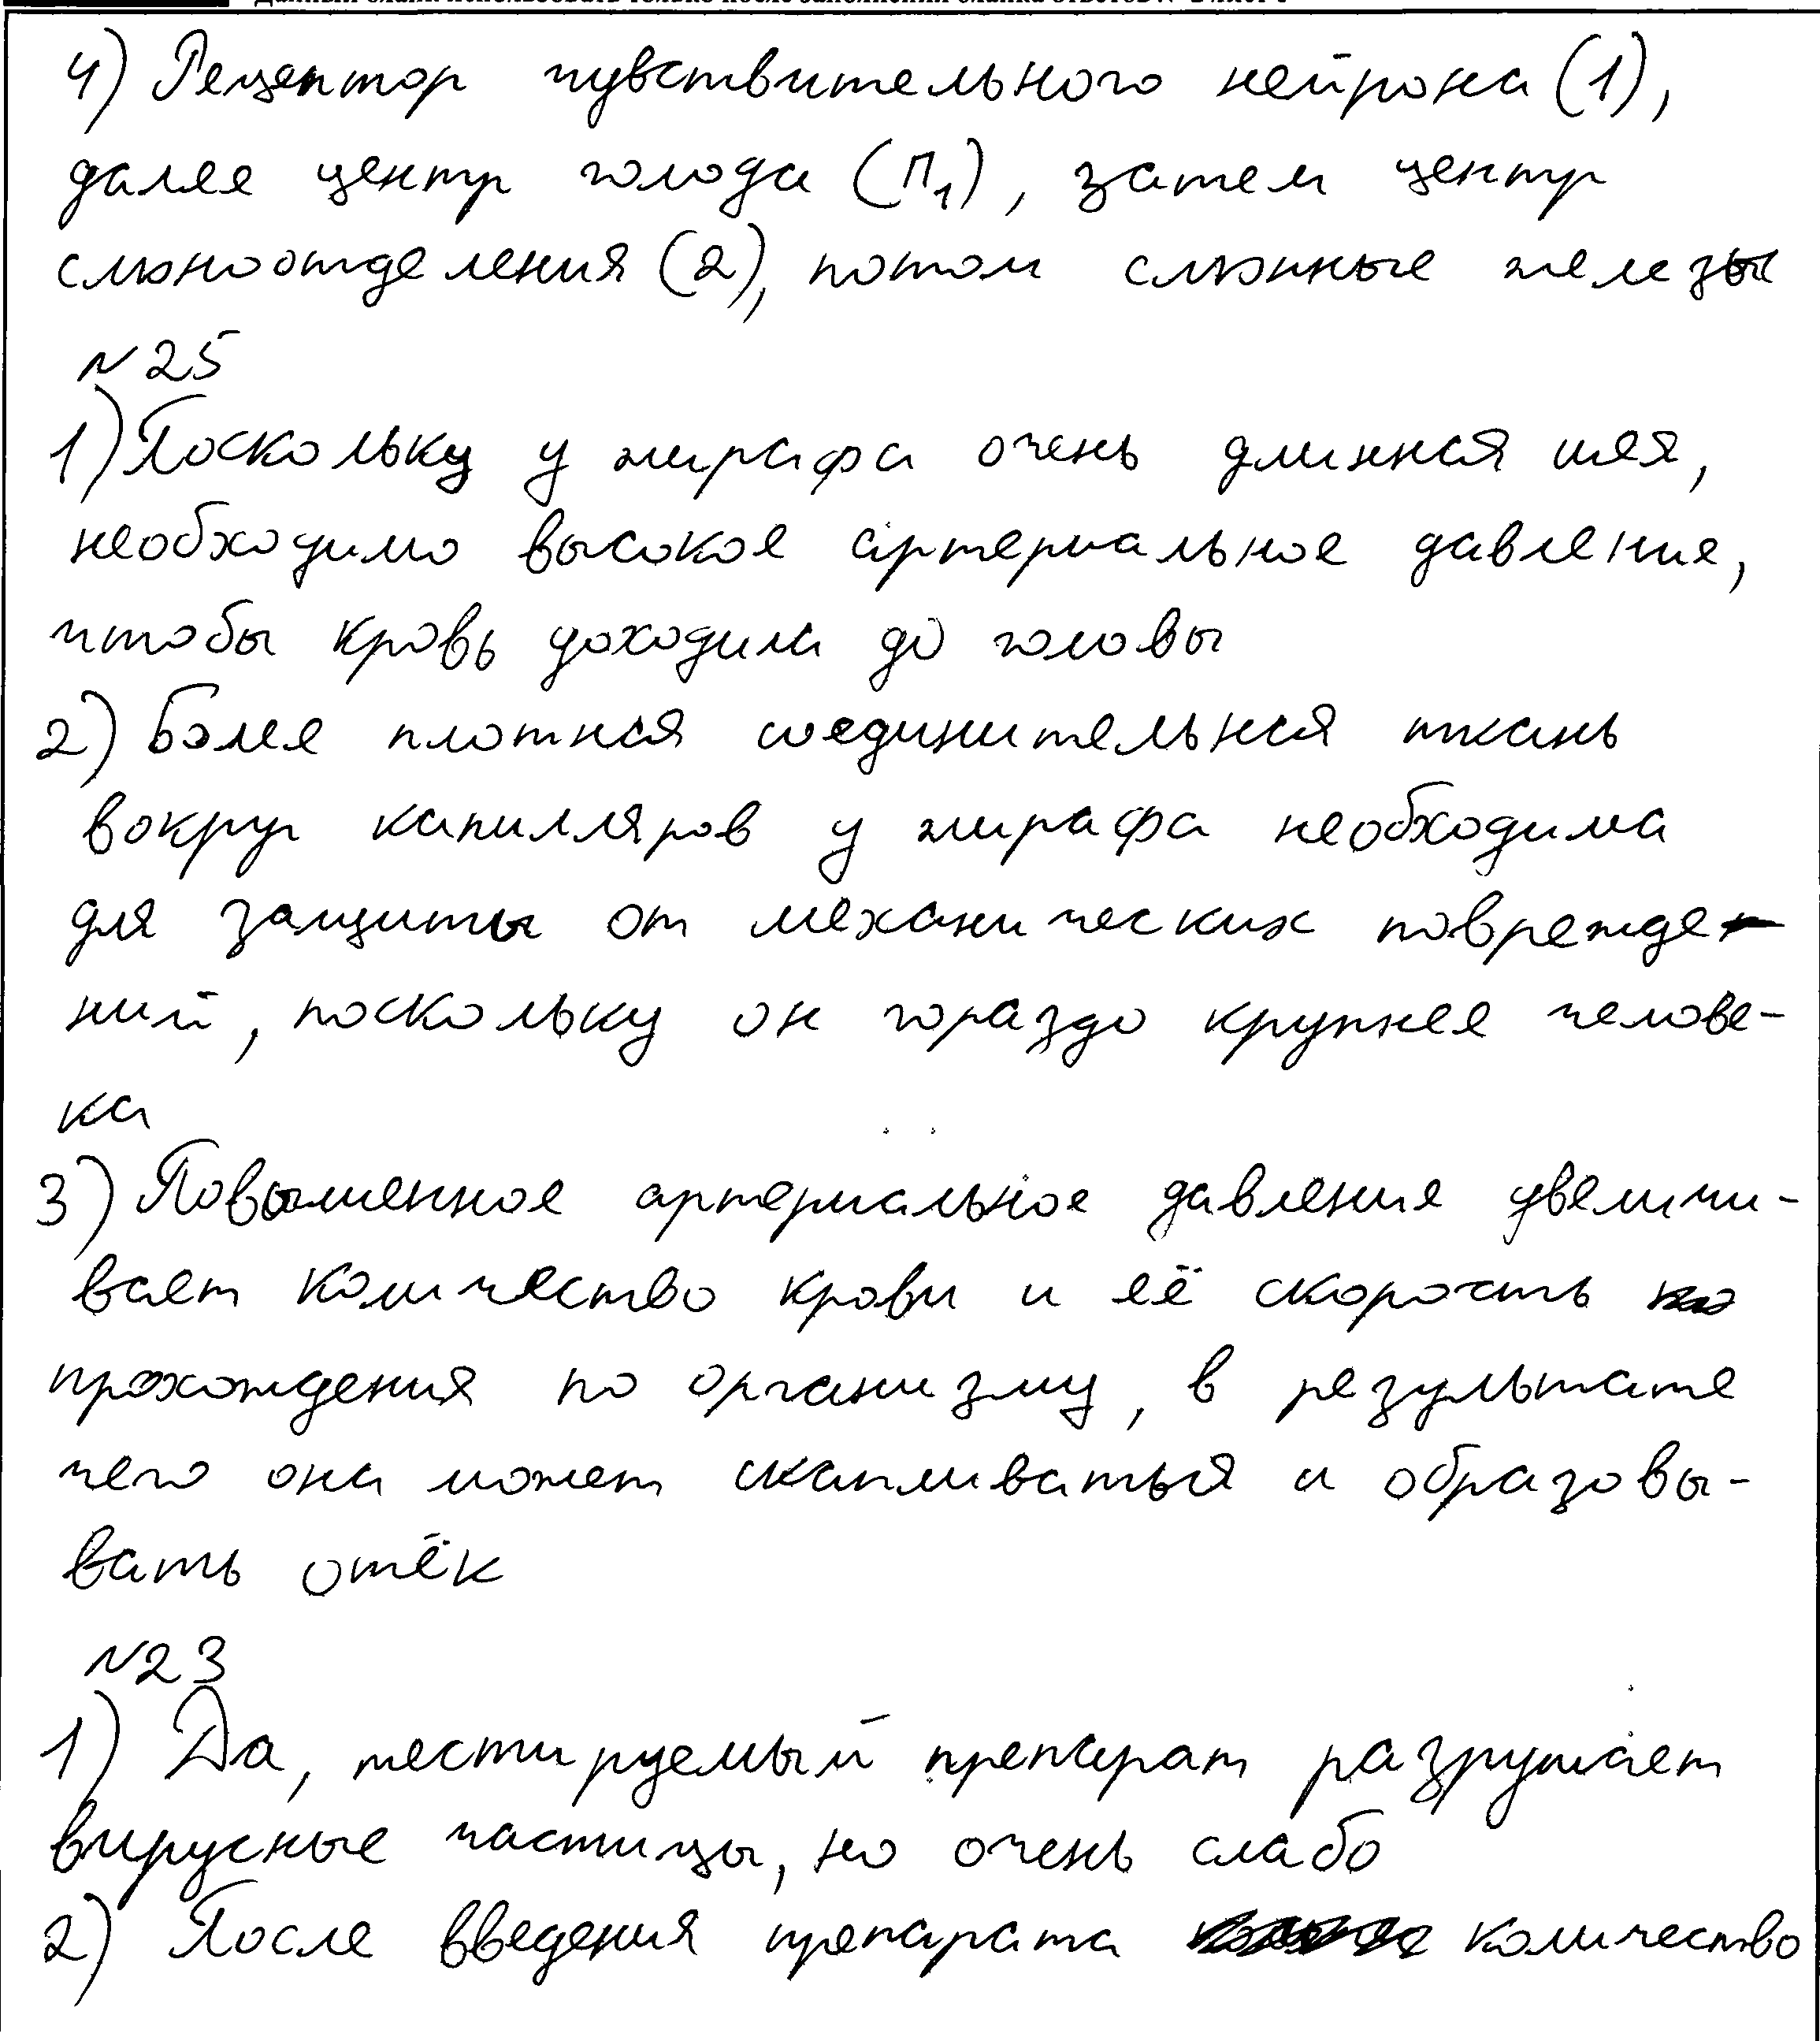 4) Рецептор чувствительного нейрона (1),
далее центр голода (П1), затем центр
слюноотделения (2), потом слюнные железы
№25
1) Поскольку у жирафа очень длинная шея,
необходимо высокое артериальное давление,
чтобы кровь доходила до головы
2) Более плотная соединительная ткань
вокруг капилляров у жирафа необходима
для защиты от механических поврежде-
ний, поскольку он гораздо крупнее челове-
ка
3) Повышенное артериальное давление увеличи-
вает количество крови и её скорость
прохождения по организму, в результате
чего она может скапливаться и образовы-
вать отёк
№23
1) Да, тестируемый препарат разрушает
вирусные частицы, но очень слабо
2) После введения препарата количество